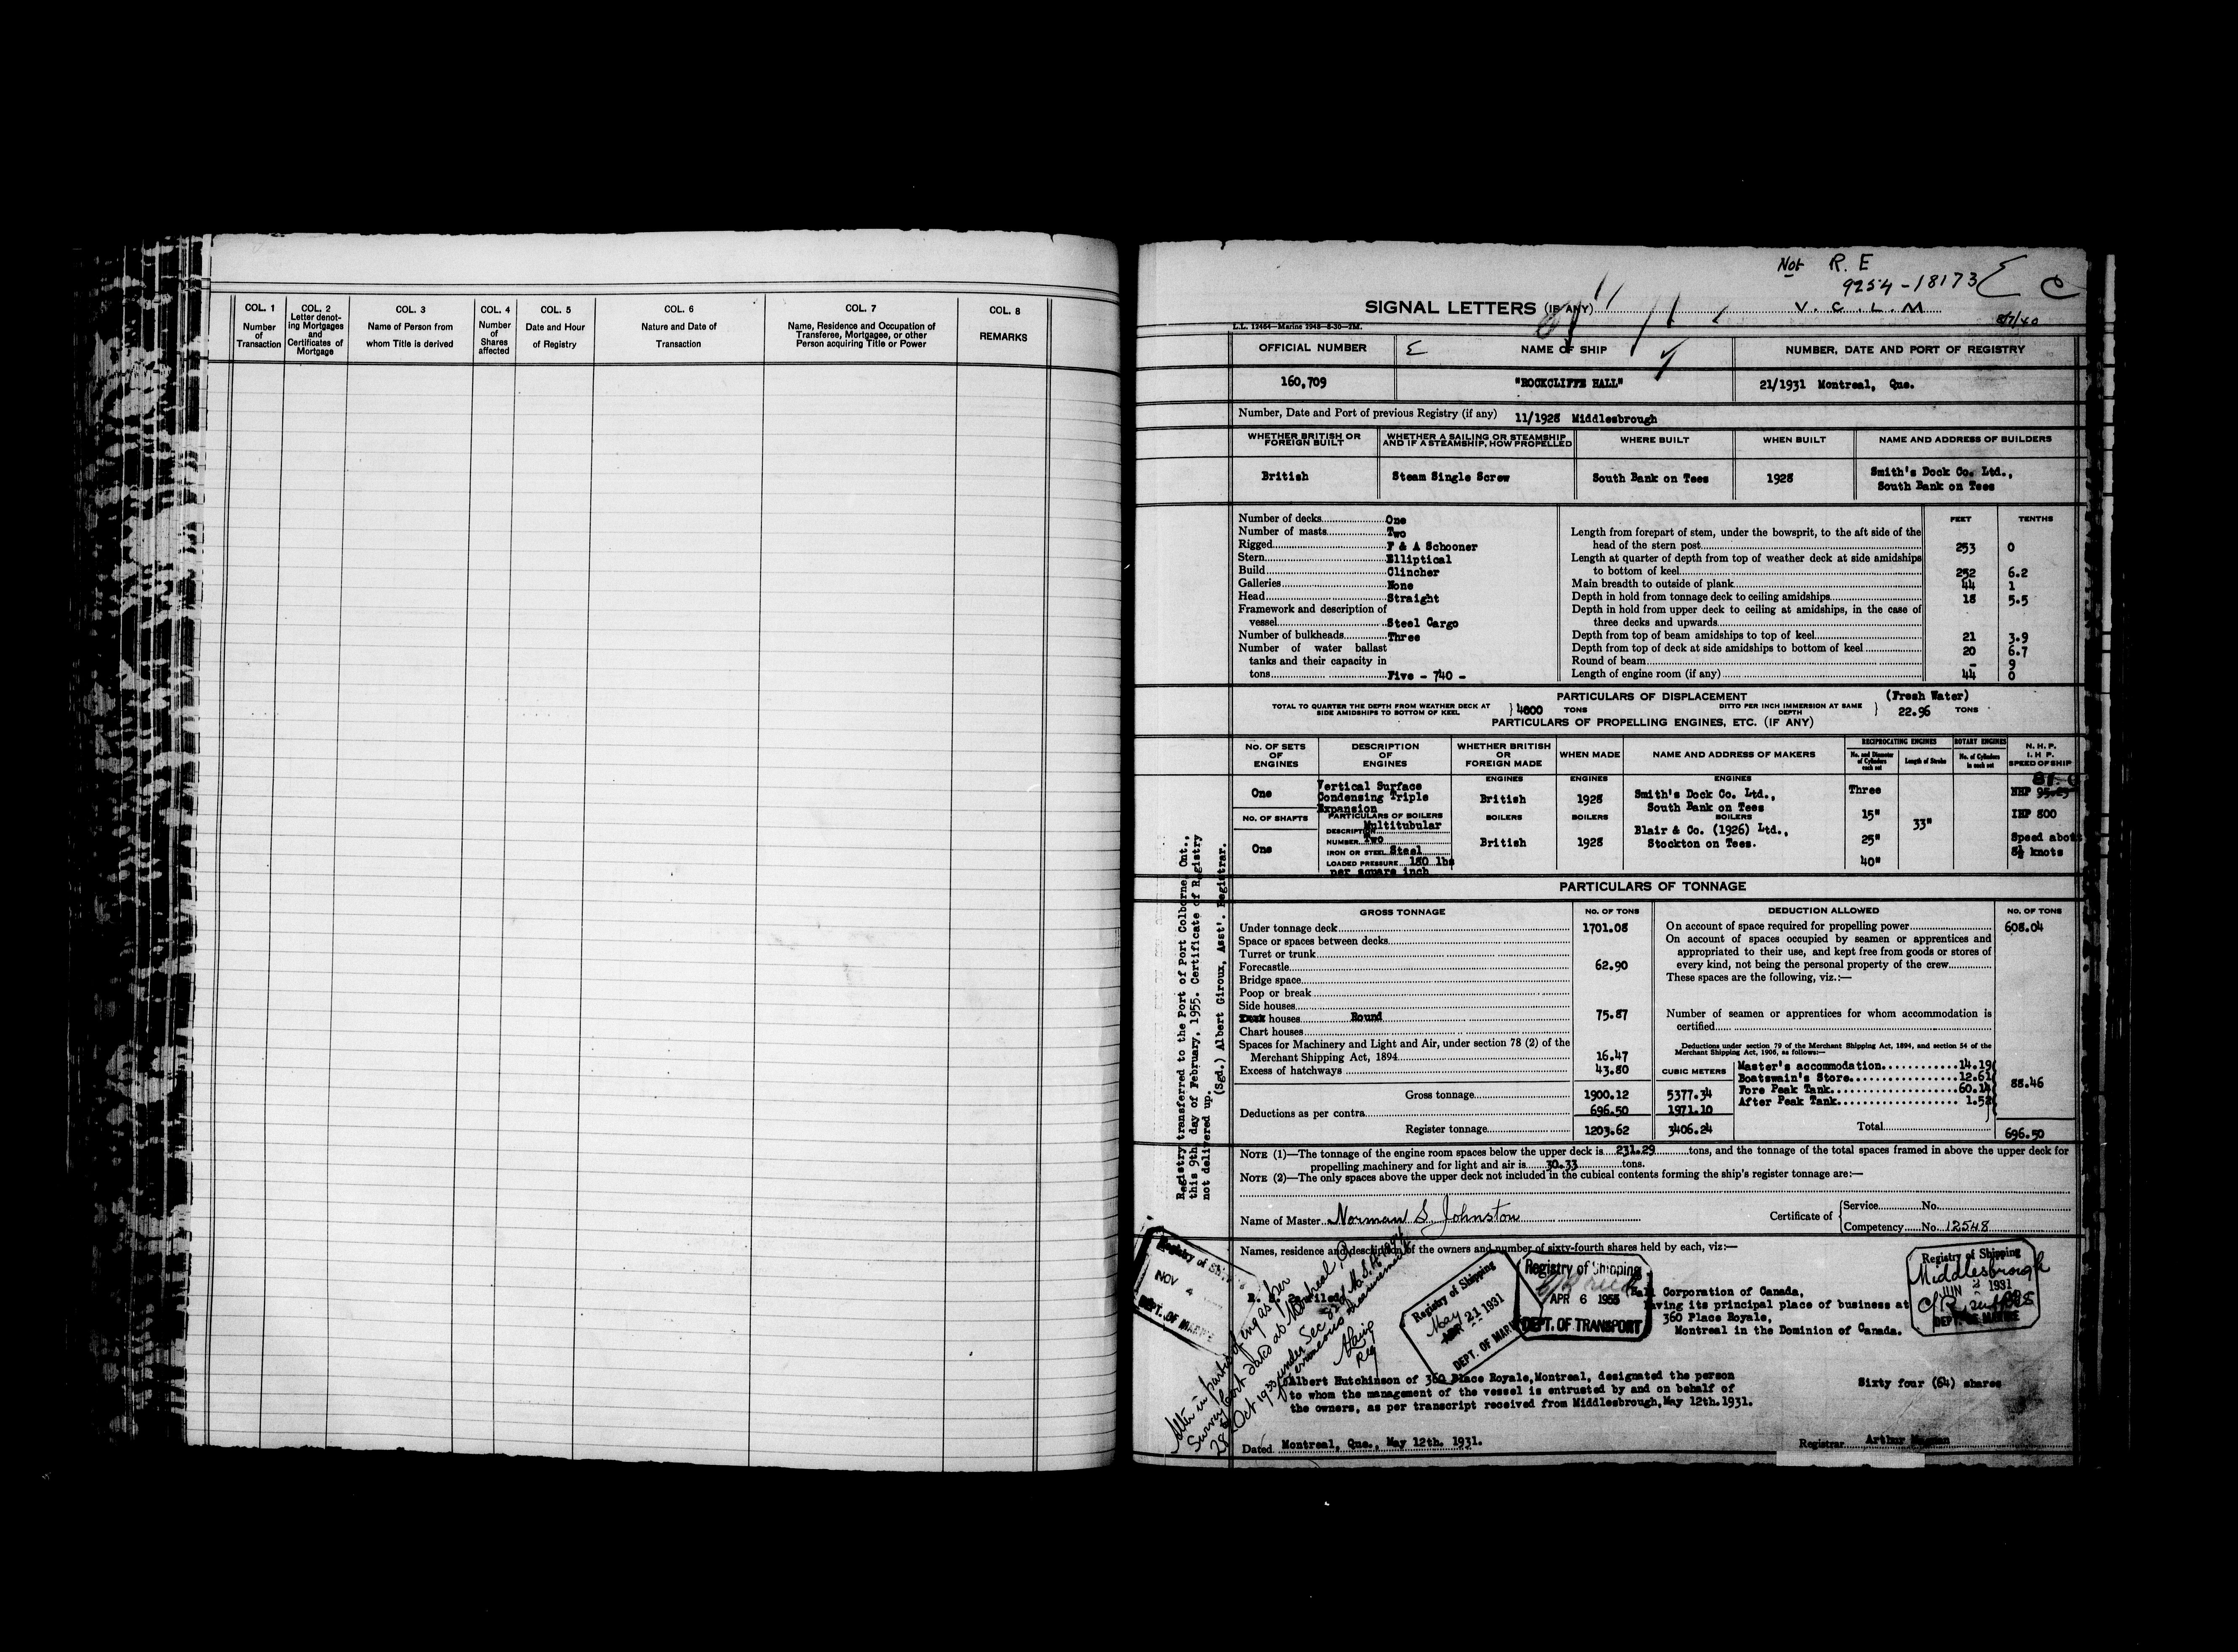 COL. 1
Number
of
Transaction
COL. 2
Letter denot-
ing Mortgages
and
Certificates of
Mortgage
COL. 3
Name of Person from
whom Title is derived
COL. 4
Number
of
Shares
affected
COL. 5
Date and Hour
of Registry
COL. 6
Nature and Date of
Transaction
COL. 7
Name, Residence and Occupation of
Transferee, Mortgagee, or other
Person acquiring Title or Power
COL. 8
REMARKS
Not R. E
9254-18173
SIGNAL LETTERS (IF ANY) V. C. L. M
L.L. 12464—Marine 2948—8-30—2M.
OFFICIAL NUMBER NAME OF SHIP NUMBER, DATE AND PORT OF REGISTRY
160,709 "ROCKCLIFFE HALL" 21/1931 Montreal, Que.
Number, Date and Port of previous Registry (if any) 11/1928 Middlesbrough
WHETHER BRITISH OR
FOREIGN BUILT
WHETHER A SAILING OR STEAMSHIP
AND IF A STEAMSHIP, HOW PROPELLED
WHERE BUILT WHEN BUILT NAME AND ADDRESS OF BUILDERS
British Steam Single Screw South Bank on Tees 1928 Smith's Dock Co. Ltd.,
South Bank on Tees
Number of decks One
Number of masts Two
Rigged F & A Schooner
Stern Elliptical
Build Clincher
Galleries None
Head Straight
Framework and description of
vessel Steel Cargo
Number of bulkheads Three
Number of water ballast
tanks and their capacity in
tons Five - 740 -
FEET TENTHS
Length from forepart of stem, under the bowsprit, to the aft side of the
head of the stern post 253 0
Length at quarter of depth from top of weather deck at side amidships
to bottom of keel 252 6.2
Main breadth to outside of plank 44 1
Depth in hold from tonnage deck to ceiling amidships 18 5.5
Depth in hold from upper deck to ceiling at amidships, in the case of
three decks and upwards
Depth from top of beam amidships to top of keel 21 3.9
Depth from top of deck at side amidships to bottom of keel 20 6.7
Round of beam - 9
Length of engine room (if any) 44 0
PARTICULARS OF DISPLACEMENT (Fresh Water)
TOTAL TO QUARTER THE DEPTH FROM WEATHER DECK AT
SIDE AMIDSHIPS TO BOTTOM OF KEEL } 4800 TONS
DITTO PER INCH IMMERSION AT SAME
DEPTH } 22.96 TONS
PARTICULARS OF PROPELLING ENGINES, ETC. (IF ANY)
No. OF SETS
OF
ENGINES
DESCRIPTION
OF
ENGINES
WHETHER BRITISH
OR
FOREIGN MADE
WHEN MADE
NAME AND ADDRESS OF MAKERS
RECIPROCATING ENGINES
No. and Diameter
of Cylinders
each set
Length of Stroke
ROTARY ENGINES
No. of Cylinders
in each set
N. H. P.
I. H. P.
SPEED OF SHIP
ENGINES ENGINES ENGINES
One
Vertical Surface
Condensing Triple
Expansion
British 1928
Smith's Dock Co. Ltd.,
South Bank on Tees
Three
15"
25"
40"
33"
NHP 95.25
IHP 800
Speed about
8½ knots
NO. OF SHAFTS
One
PARTICULARS OF BOILERS
DESCRIPTION Multitubular
NUMBER Two
IRON OR STEEL Steel
LOADED PRESSURE 180 lbs
per square inch
BOILERS BOILERS BOILERS
British 1928
Blair & Co. (1926) Ltd.,
Stockton on Tees.
PARTICULARS OF TONNAGE
GROSS TONNAGE No. OF TONS
Under tonnage deck 1701.08
Space or spaces between decks
Turret or trunk
Forecastle 62.90
Bridge space
Poop or break
Side houses
houses Round 75.87
Chart houses
Spaces for Machinery and Light and Air, under section 78 (2) of the
Merchant Shipping Act, 1894 16.47
Excess of hatchways 43.80
CUBIC METERS
Gross tonnage 1900.12 5377.34
Deductions as per contra 696.50 1971.10
Register tonnage 1203.62 3406.24
DEDUCTION ALLOWED No. OF TONS
On account of space required for propelling power 608.04
On account of spaces occupied by seamen or apprentices and
appropriated to their use, and kept free from goods or stores of
every kind, not being the personal property of the crew
These spaces are the following, viz.:—
Number of seamen or apprentices for whom accommodation is
certified
Deductions under section 79 of the Merchant Shipping Act, 1894, and section 54 of the
Merchant Shipping Act, 1906, as follows:—
Master's accommodation 14.19
Boatswain's Store 12.61
Fore Peak Tank 60.14
After Peak Tank 1.52
88.46
Total 696.50
NOTE (1)—The tonnage of the engine room spaces below the upper deck is 231.29 tons, and the tonnage of the total spaces framed in above the upper deck for
propelling machinery and for light and air is 30.33 tons.
NOTE (2)—The only spaces above the upper deck not included in the cubical contents forming the ship's register tonnage are:—
Name of Master Norman S Johnston
Certificate of { Service No.
Competency No. 12548
Names, residence and description of the owners and number of sixty-fourth shares held by each, viz:—
Hall Corporation of Canada,
having its principal place of business at
360 Place Royale,
Montreal in the Dominion of Canada.
Sixty four (64) shares
Albert Hutchinson of 360 Place Royale, Montreal, designated the person
to whom the management of the vessel is entrusted by and on behalf of
the owners, as per transcript received from Middlesbrough, May 12th. 1931.
Dated Montreal, Que., May 12th. 1931.
Registrar Arthur
Registry transferred to the Port of Port Colborne, Ont.,
this 9th day of February, 1955. Certificate of Registry
not delivered up.
(Sgd.) Albert Giroux, Asst'. Registrar.
NOV 4
DEPT. OF MARINE
Registry of Shipping
May 21 1931
DEPT. OF MARINE
Registry of Shipping
APR 6 1955
DEPT. OF TRANSPORT
Registry of Shipping
Middlesbrough
JUN 2 1931
DEPT. OF MARINE